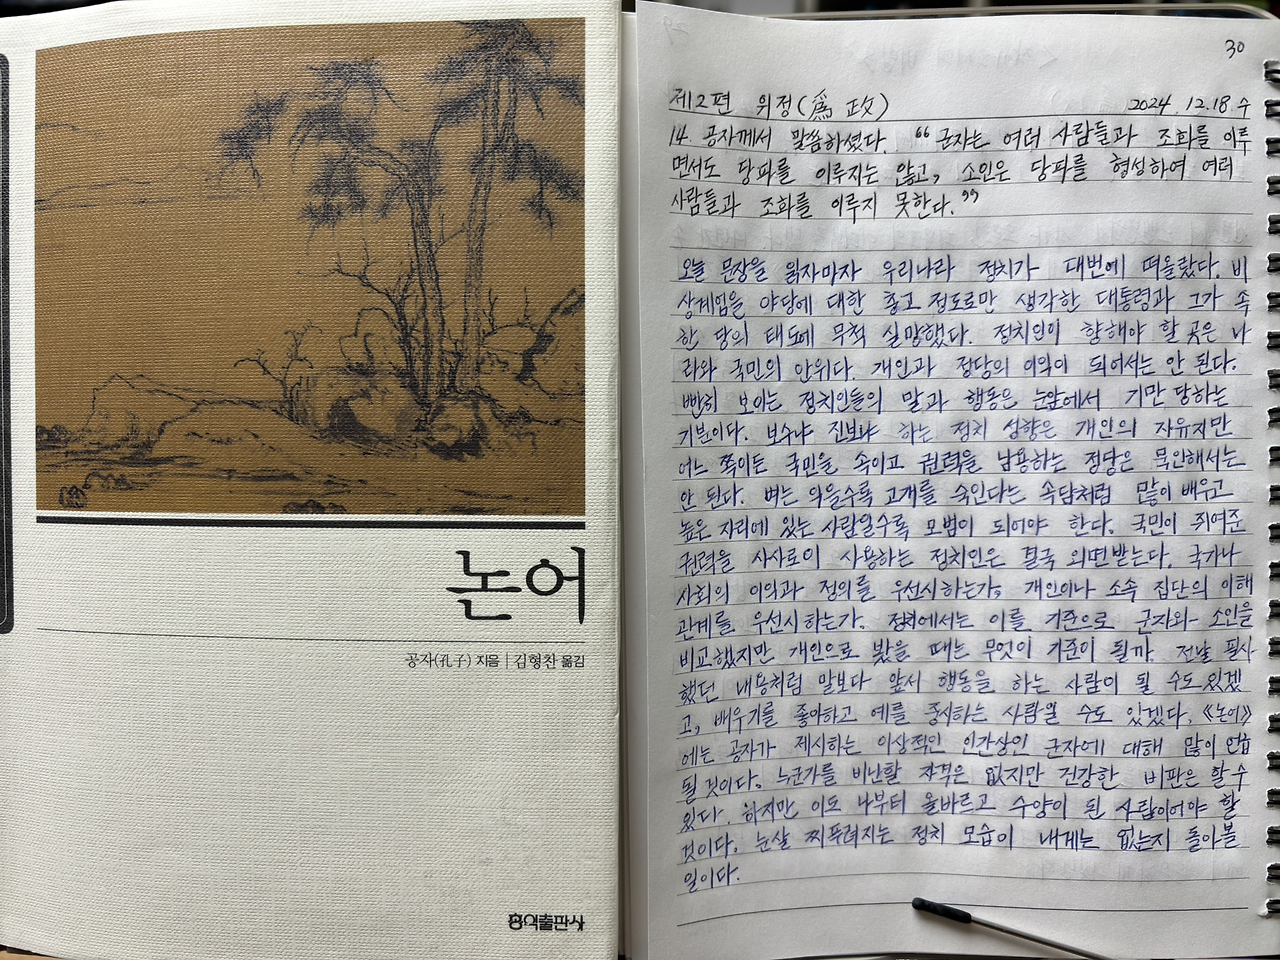 논어
공자(孔子) 지음 | 김형찬 옮김
홍익출판사
30
제2편 위정(爲政) 2024. 12. 18 수
14. 공자께서 말씀하셨다. “군자는 여러 사람들과 조화를 이루
면서도 당파를 이루지는 않고, 소인은 당파를 형성하여 여러
사람들과 조화를 이루지 못한다.”
오늘 문장을 읽자마자 우리나라 정치가 대번에 떠올랐다. 비
상계엄을 야당에 대한 경고 정도로만 생각한 대통령과 그가 속
한 당의 태도에 무척 실망했다. 정치인이 향해야 할 곳은 나
라와 국민의 안위다. 개인과 정당의 이익이 되어서는 안 된다.
빤히 보이는 정치인들의 말과 행동은 눈앞에서 기만 당하는
기분이다. 보수냐 진보냐 하는 정치 성향은 개인의 자유지만
어느 쪽이든 국민을 속이고 권력을 남용하는 정당은 묵인해서는
안 된다. 벼는 익을수록 고개를 숙인다는 속담처럼 많이 배우고
높은 자리에 있는 사람일수록 모범이 되어야 한다. 국민이 쥐여준
권력을 사사로이 사용하는 정치인은 결국 외면받는다. 국가나
사회의 이익과 정의를 우선시하는가, 개인이나 소속 집단의 이해
관계를 우선시하는가. 정치에서는 이를 기준으로 군자와 소인을
비교했지만 개인으로 봤을 때는 무엇이 기준이 될까. 전날 필사
했던 내용처럼 말보다 앞서 행동을 하는 사람이 될 수도 있겠
고, 배우기를 좋아하고 예를 중시하는 사람일 수도 있겠다. 《논어》
에는 공자가 제시하는 이상적인 인간상인 군자에 대해 많이 언급
될 것이다. 누군가를 비난할 자격은 없지만 건강한 비판은 할 수
있다. 하지만 이도 나부터 올바르고 수양이 된 사람이어야 할
것이다. 눈살 찌푸려지는 정치 모습이 내게는 없는지 돌아볼
일이다.